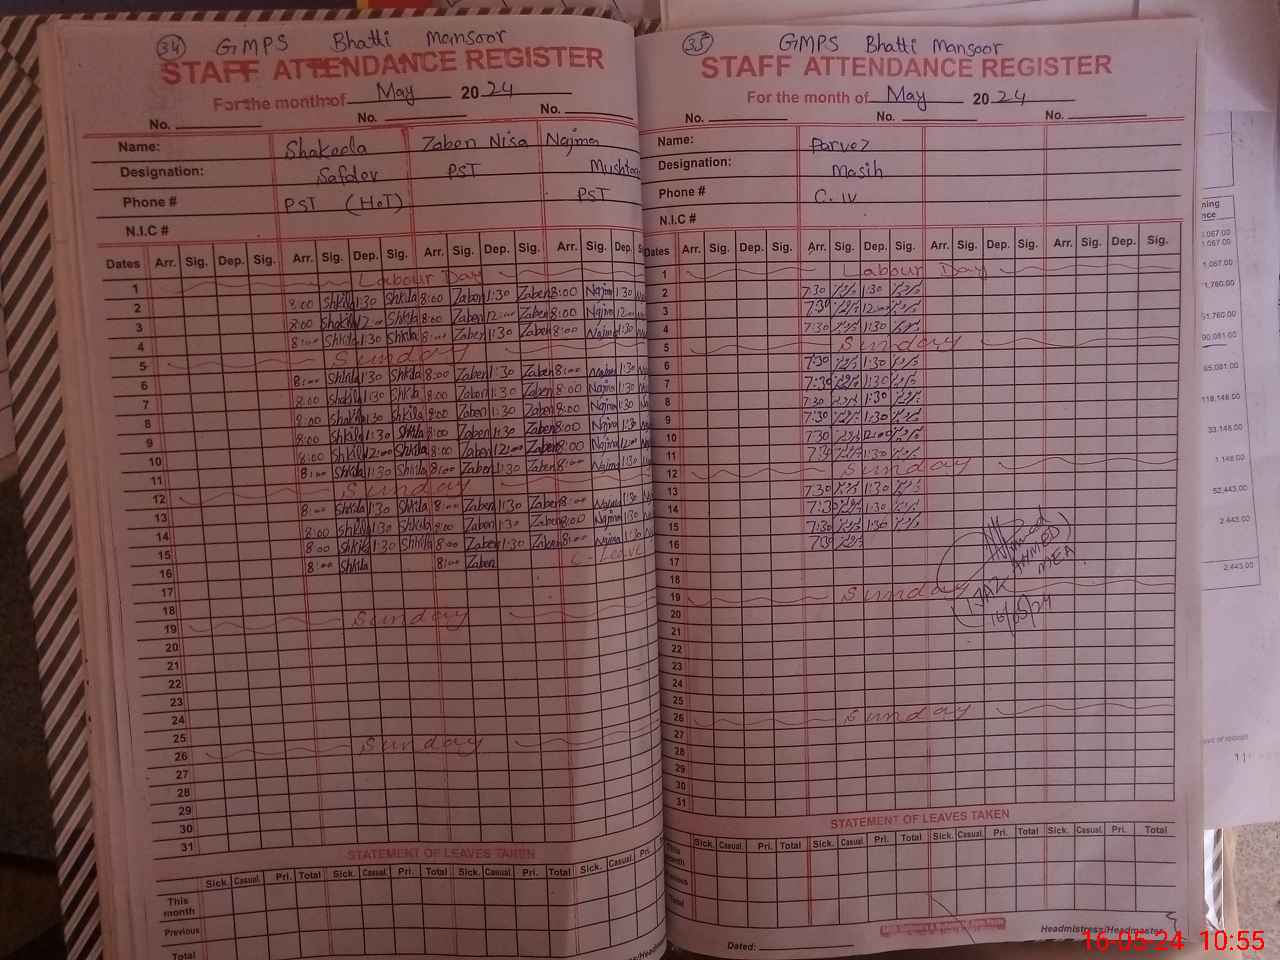 34 GMPS Bhatti Mansoor
STAFF ATTENDANCE REGISTER
For the month of May 2024
No. No. No.
Name: Shakeela Zaben Nisa Najma
Designation: Safdar PST Mushtaq
Phone # PST (HoT) PST
N.I.C #
Dates Arr. Sig. Dep. Sig. Arr. Sig. Dep. Sig. Arr. Sig. Dep. Sig. Arr. Sig. Dep.
1 Labour Day
2 8:00 Shkila 1:30 Shkila 8:00 Zaben 1:30 Zaben 8:00 Najma 1:30
3 8:00 Shakila 12:00 Shkila 8:00 Zaben 12:00 Zaben 8:00 Najma 12:00
4 8:00 Shkila 1:30 Shkila 8:00 Zaben 1:30 Zaben 8:00 Najma 1:30
5 Sunday
6 8:00 Shkila 1:30 Shkila 8:00 Zaben 1:30 Zaben 8:00 Najma 1:30
7 8:00 Shkila 1:30 Shkila 8:00 Zaben 1:30 Zaben 8:00 Najma 1:30
8 8:00 Shakila 1:30 Shkila 8:00 Zaben 1:30 Zaben 8:00 Najma 1:30
9 8:00 Shkila 1:30 Shkila 8:00 Zaben 1:30 Zaben 8:00 Najma 1:30
10 8:00 Shkila 12:00 Shkila 8:00 Zaben 12:00 Zaben 8:00 Najma 12:00
11 8:00 Shkila 1:30 Shkila 8:00 Zaben 1:30 Zaben 8:00 Najma 1:30
12 Sunday
13 8:00 Shkila 1:30 Shkila 8:00 Zaben 1:30 Zaben 8:00 Najma 1:30
14 8:00 Shkila 1:30 Shkila 8:00 Zaben 1:30 Zaben 8:00 Najma 1:30
15 8:00 Shkila 1:30 Shkila 8:00 Zaben 1:30 Zaben 8:00 Najma 1:30
16 8:00 Shkila 8:00 Zaben C-Leave
17
18
19 Sunday
20
21
22
23
24
25
26 Sunday
27
28
29
30
31
STATEMENT OF LEAVES TAKEN
Sick. Casual. Pri. Total Sick. Casual. Pri. Total Sick. Casual. Pri. Total Sick. Casual. Pri.
This month
Previous
Total
35 GMPS Bhatti Mansoor
STAFF ATTENDANCE REGISTER
For the month of May 2024
No. No. No.
Name: Parvez
Designation: Masih
Phone # C. IV
N.I.C #
Dates Arr. Sig. Dep. Sig. Arr. Sig. Dep. Sig. Arr. Sig. Dep. Sig. Arr. Sig. Dep. Sig.
1 Labour Day
2 7:30 1:30
3 7:30 12:00
4 7:30 1:30
5 Sunday
6 7:30 1:30
7 7:30 1:30
8 7:30 1:30
9 7:30 1:30
10 7:30 12:00
11 7:30 1:30
12 Sunday
13 7:30 1:30
14 7:30 1:30
15 7:30 1:30
16 7:30
17
18
19 Sunday
20
21
22
23
24
25
26 Sunday
27
28
29
30
31
AHMED)
MEA
16/05/24
STATEMENT OF LEAVES TAKEN
Sick. Casual. Pri. Total Sick. Casual. Pri. Total Sick. Casual. Pri. Total
Dated: Headmistress/Headmaster
16-05-24 10:55